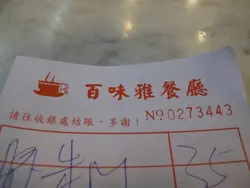 百味雅餐廳
請往收銀處結賬，多謝！ Nº 0273443
35